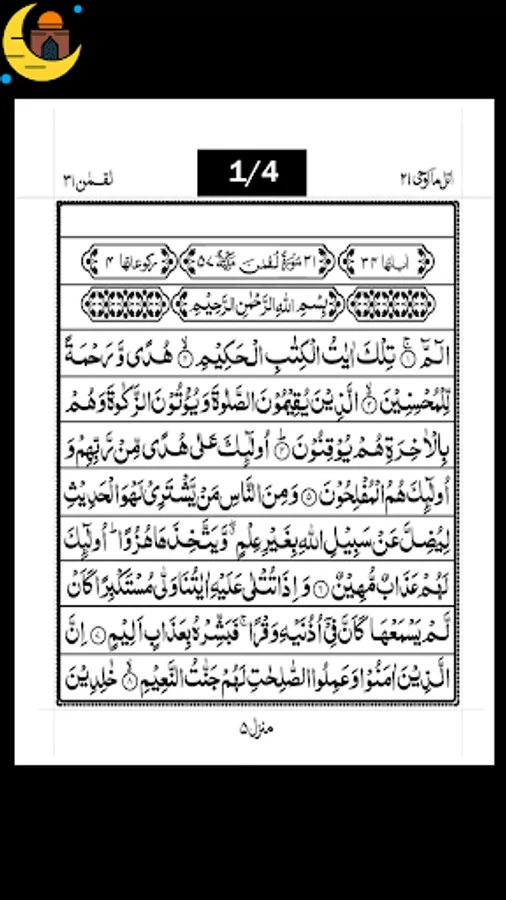 1/4
اتل ما اوحی ۲۱
لقمٰن ۳۱
اٰیاتھا ۳۴ ۳۱ سُوْرَۃُ لُقْمٰنَ مَکِّیَّۃٌ ۵۷ رکوعاتھا ۴
بِسْمِ اللّٰهِ الرَّحْمٰنِ الرَّحِیْمِ
الٓمّٓ ۚ﴿۱﴾ تِلْكَ اٰیٰتُ الْكِتٰبِ الْحَكِیْمِ ۙ﴿۲﴾ هُدًی وَّ رَحْمَةً
لِّلْمُحْسِنِیْنَ ۙ﴿۳﴾ الَّذِیْنَ یُقِیْمُوْنَ الصَّلٰوةَ وَ یُؤْتُوْنَ الزَّكٰوةَ وَ هُمْ
بِالْاٰخِرَةِ هُمْ یُوْقِنُوْنَ ؕ﴿۴﴾ اُولٰٓىِٕكَ عَلٰی هُدًی مِّنْ رَّبِّهِمْ وَ
اُولٰٓىِٕكَ هُمُ الْمُفْلِحُوْنَ ﴿۵﴾ وَ مِنَ النَّاسِ مَنْ یَّشْتَرِیْ لَهْوَ الْحَدِیْثِ
لِیُضِلَّ عَنْ سَبِیْلِ اللّٰهِ بِغَیْرِ عِلْمٍ ۖۗ وَّ یَتَّخِذَهَا هُزُوًا ؕ اُولٰٓىِٕكَ
لَهُمْ عَذَابٌ مُّهِیْنٌ ﴿۶﴾ وَ اِذَا تُتْلٰی عَلَیْهِ اٰیٰتُنَا وَلّٰی مُسْتَكْبِرًا كَاَنْ
لَّمْ یَسْمَعْهَا كَاَنَّ فِیْۤ اُذُنَیْهِ وَقْرًا ۚ فَبَشِّرْهُ بِعَذَابٍ اَلِیْمٍ ﴿۷﴾ اِنَّ
الَّذِیْنَ اٰمَنُوْا وَ عَمِلُوا الصّٰلِحٰتِ لَهُمْ جَنّٰتُ النَّعِیْمِ ۙ﴿۸﴾ خٰلِدِیْنَ
منزل ۵